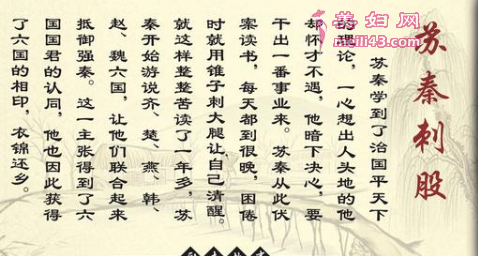 美妇网
meili43.com
苏秦刺股
苏秦学到了治国平天下
的理论，一心想出人头地的他
却怀才不遇，他暗下决心，要
干出一番事业来。苏秦从此伏
案读书，每天都到很晚，困倦
时就用锥子刺大腿让自己清醒。
就这样整整苦读了一年多，苏
秦开始游说齐、楚、燕、韩、
赵、魏六国，让他们联合起来
抵御强秦。这一主张得到了六
国国君的认同，他也因此获得
了六国的相印，衣锦还乡。